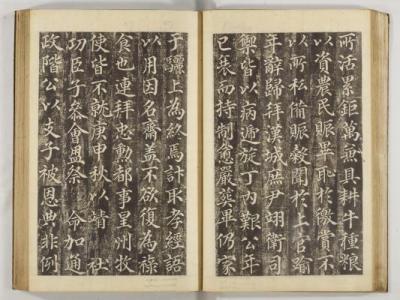 所活累鉅萬無具耕牛種粮
以資農民賑畢耻於徼賞不
以所私備賑穀聞於上官踰
年辭歸拜漢城庶尹翊衛司
禦皆以病遞旋丁内艱公年
已衰而持制愈嚴葬畢仍家
于驪上為終焉計取孝經語
以用因名齋盖不欲復為祿
食也連拜忠勳都事星州牧
使皆不就庚申秋以靖 社
功臣子叅會盟祭 命加通
政階公以支子被恩典非例